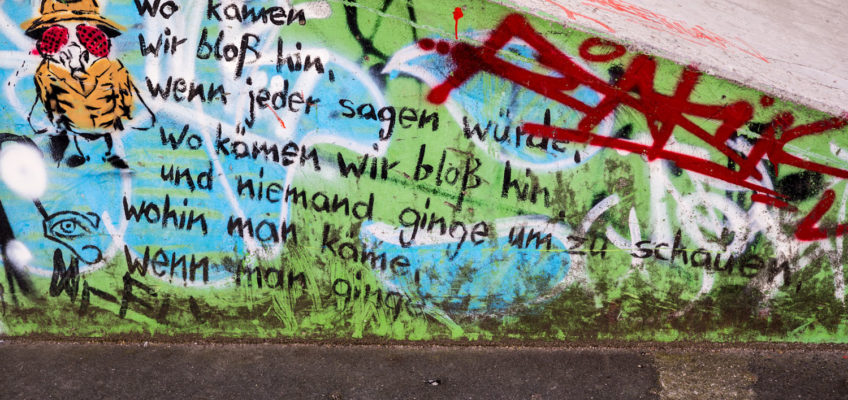 wo kämen
wir bloß hin,
wenn jeder sagen würde,
wo kämen wir bloß hin
und niemand ginge um zu schauen,
wohin man käme,
wenn man ginge